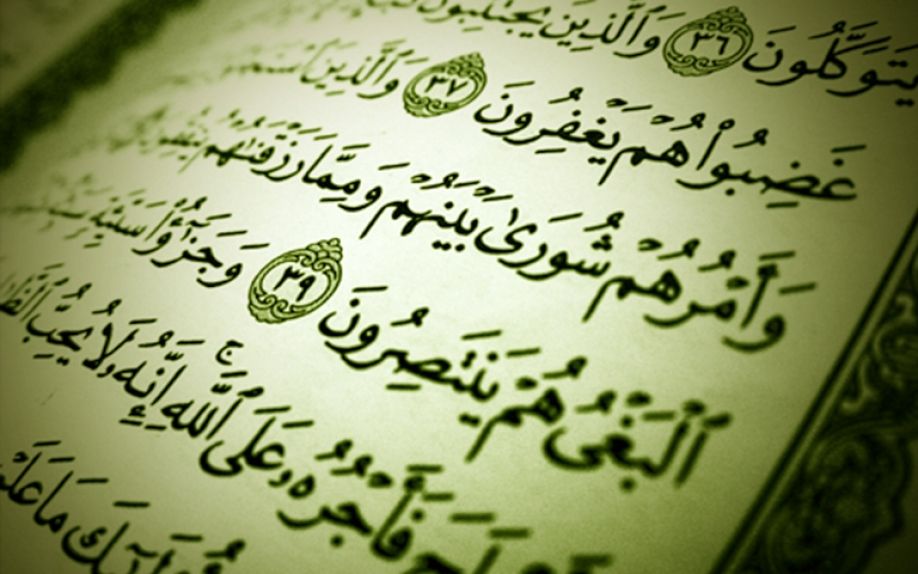 يَتَوَكَّلُونَ ٣٦ وَٱلَّذِينَ يَجْتَنِبُونَ
غَضِبُوا۟ هُمْ يَغْفِرُونَ ٣٧ وَٱلَّذِينَ
وَأَمْرُهُمْ شُورَىٰ بَيْنَهُمْ وَمِمَّا رَزَقْنَٰهُمْ يُنفِقُونَ
ٱلْبَغْىُ هُمْ يَنتَصِرُونَ ٣٩ وَجَزَٰٓؤُا۟ سَيِّئَةٍ
فَأَجْرُهُۥ عَلَى ٱللَّهِ ۚ إِنَّهُۥ لَا يُحِبُّ
مَا